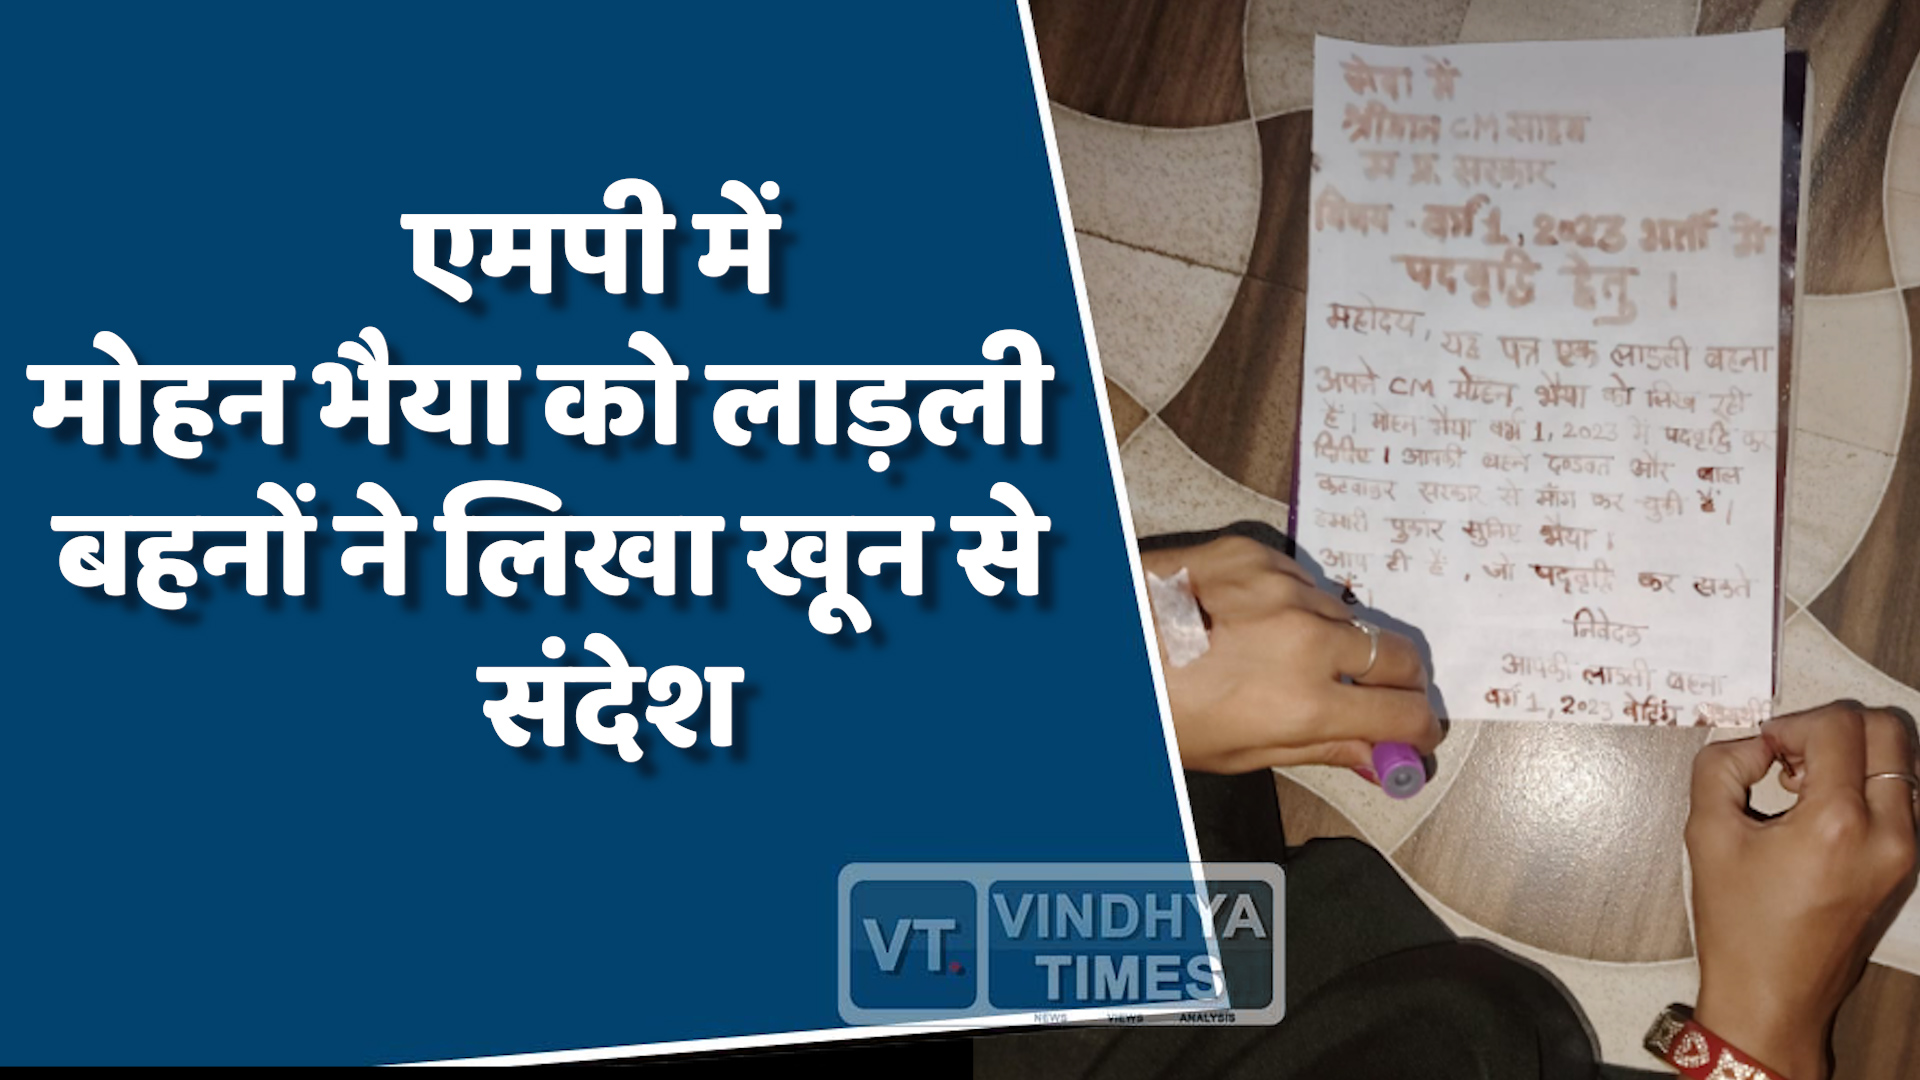 एमपी में
मोहन भैया को लाड़ली
बहनों ने लिखा खून से
संदेश
सेवा में
श्रीमान CM साहब
म प्र. सरकार
विषय - वर्ग 1, 2023 भर्ती में
पदवृद्धि हेतु ।
महोदय,
यह पत्र एक लाडली बहना
अपने CM मोहन भैया को लिख रही
हैं। मोहन भैया वर्ग 1, 2023 में पदवृद्धि कर
दीजिए। आपकी बहने दण्डवत और बाल
कटवाकर सरकार से माँग कर चुकी हैं।
हमारी पुकार सुनिए भैया।
आप ही हैं, जो पदवृद्धि कर सकते
हैं।
निवेदक
आपकी लाडली बहना
वर्ग 1, 2023 वेटिंग
VT.
VINDHYA
TIMES
NEWS VIEWS ANALYSIS